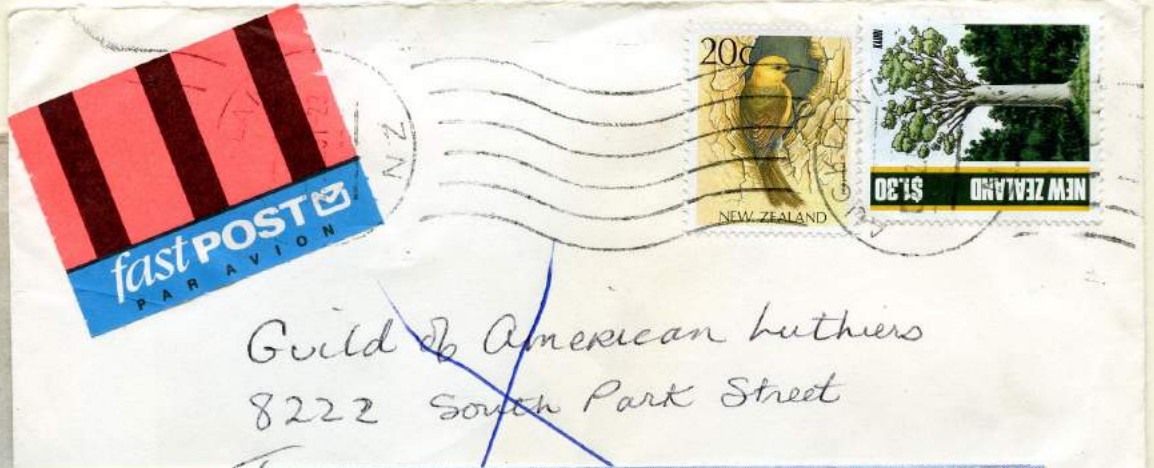 fastPOST
PAR AVION
NZ
20c
NEW ZEALAND
KAURI
$1.30
NEW ZEALAND
Guild of American Luthiers
8222 South Park Street